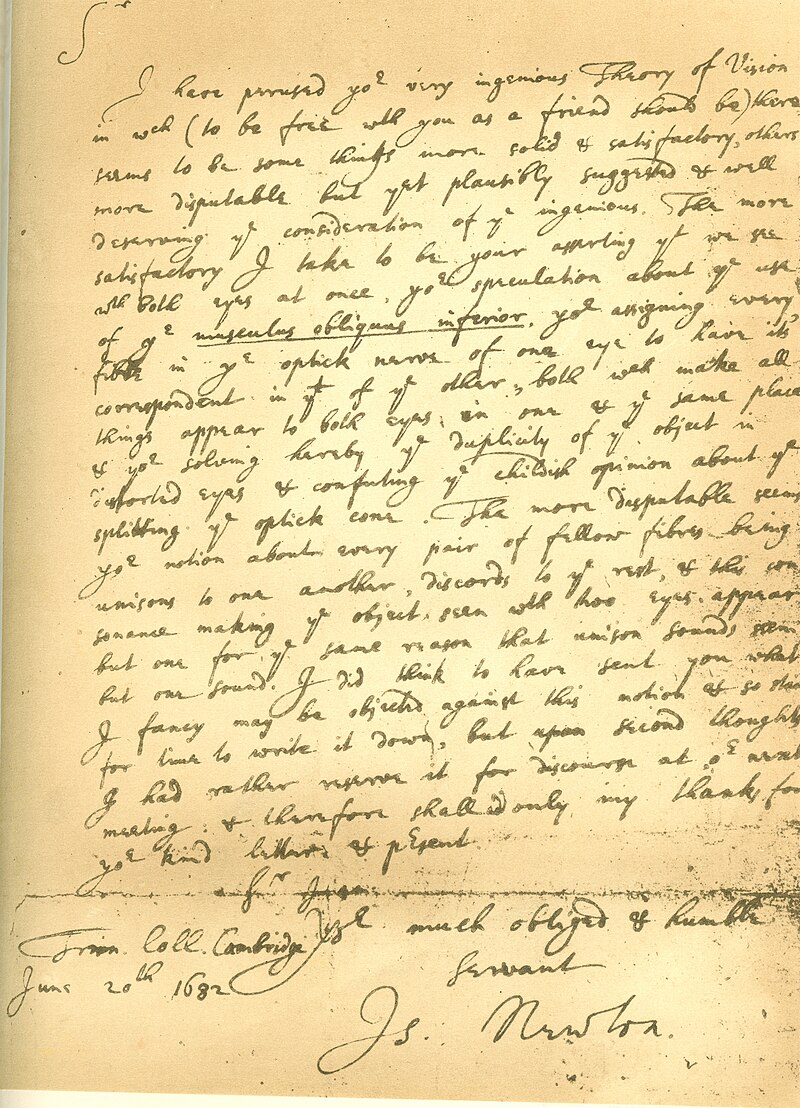 Sr
I have perused yor very ingenious Theory of Vision
in wch (to be free wth you as a friend should be) there
seems to be some things more solid & satisfactory, others
more disputable but yet plausibly suggested & well
deserving ye consideration of ye ingenious. The more
satisfactory I take to be your asserting yt we see
wth both eyes at once, yor speculation about ye use
of ye musculus obliquus inferior, yor assigning every
fibre in ye optick nerve of one eye to have its
correspondent in yt of ye other, both wch make all
things appear to both eyes in one & ye same place
& yor solving hereby ye duplicity of ye object in
distorted eyes & confuting ye childish opinion about ye
splitting ye optick cone. The more disputable seems
yor notion about every pair of fellow fibres being
unisons to one another, discords to ye rest, & this con
sonance making ye object seen wth two eyes appear
but one for ye same reason that unison sounds seem
but one sound. I did think to have sent you what
I fancy may be objected against this notion & so
for time to write it down, but upon second thoughts
I had rather reserve it for discourse at or next
meeting: & therefore shall add only my thanks for
yor kind letter & present.
Sr
Yor much obliged & humble
Trin. Coll. Cambridge
Servant
June 20th 1682
Is. Newton.